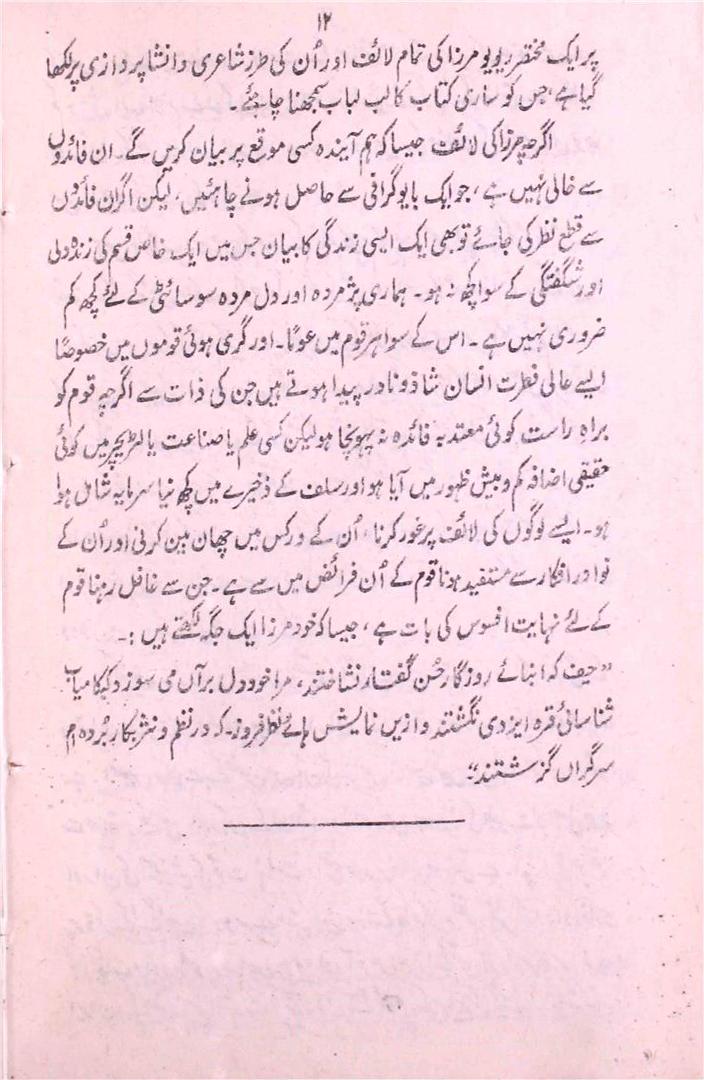 ۱۲
پر ایک مختصر ریویو مرزا کی تمام لائف اور اُن کی طرز شاعری و انشا پردازی پر لکھا
گیا ہے، جس کو ساری کتاب کا لب لباب سمجھنا چاہئے۔
اگرچہ مرزا کی لائف جیسا کہ ہم آیندہ کسی موقع پر بیان کریں گے۔ ان فائدوں
سے خالی نہیں ہے، جو ایک بایوگرافی سے حاصل ہونے چاہئیں، لیکن اگر ان فائدوں
سے قطع نظر کی جائے تو بھی ایک ایسی زندگی کا بیان جس میں ایک خاص قسم کی زندہ دلی
اور شگفتگی کے سوا کچھ نہ ہو۔ ہماری پژمردہ اور دل مردہ سوسائٹی کے لئے کچھ کم
ضروری نہیں ہے۔ اس کے سوا ہر قوم میں عموًا۔ اور گری ہوئی قوموں میں خصوصًا
ایسے عالی فطرت انسان شاذ و نادر پیدا ہوتے ہیں جن کی ذات سے اگرچہ قوم کو
براہِ راست کوئی معتدبہ فائدہ نہ پہونچا ہو لیکن کسی علم یا صناعت یا لٹریچر میں کوئی
حقیقی اضافہ کم و بیش ظہور میں آیا ہو اور سلف کے ذخیرے میں کچھ نیا سرمایہ شامل ہوا
ہو۔ ایسے لوگوں کی لائف پر غور کرنا، اُن کے ورکس میں چھان بین کرنی اور اُن کے
نوادر افکار سے مستفید ہونا قوم کے اُن فرائض میں سے ہے۔ جن سے غافل رہنا قوم
کے لئے نہایت افسوس کی بات ہے، جیسا کہ خود مرزا ایک جگہ لکھتے ہیں :۔
"حیف کہ ابنائے روزگار حُسن گفتار نشاختند، مرا خود دل برآں می سوزد کہ کامیاب
شناسائی فرہ ایزدی نگشتند و ازیں نمایش ہائے نظر فروز۔ کہ در نظم و نثر بکار بُردہ ام
سرگراں گزشتند"